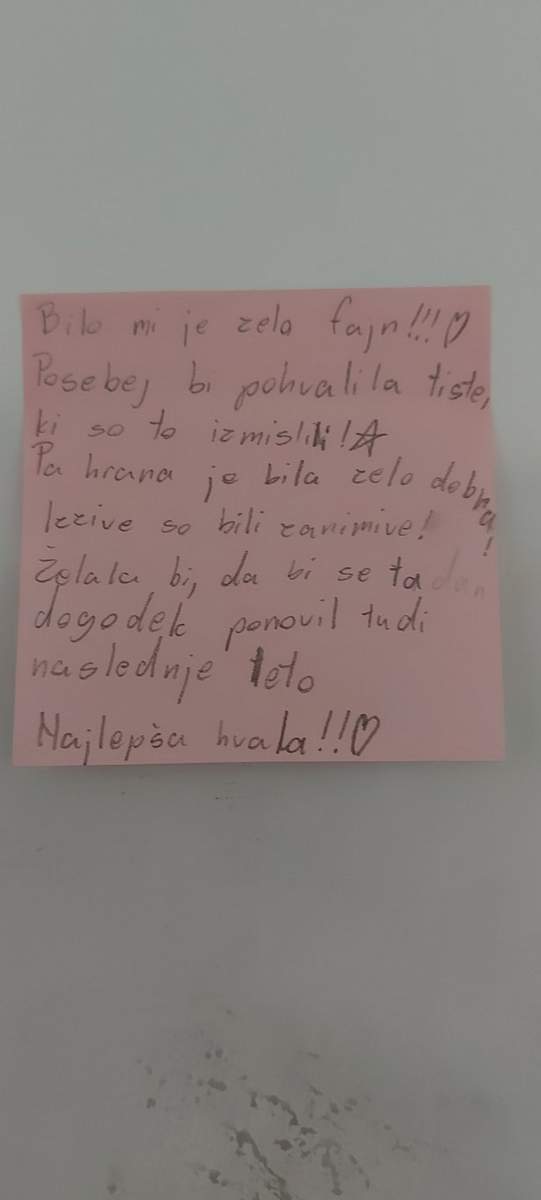 Bilo mi je zelo fajn!!!♡
Posebej bi pohvalila tiste,
ki so to izmislili!☆
Pa hrana je bila zelo dobra!
Izzive so bili zanimive!
Želala bi, da bi se ta dan
dogodek ponovil tudi
naslednje leto
Najlepša hvala!!!♡